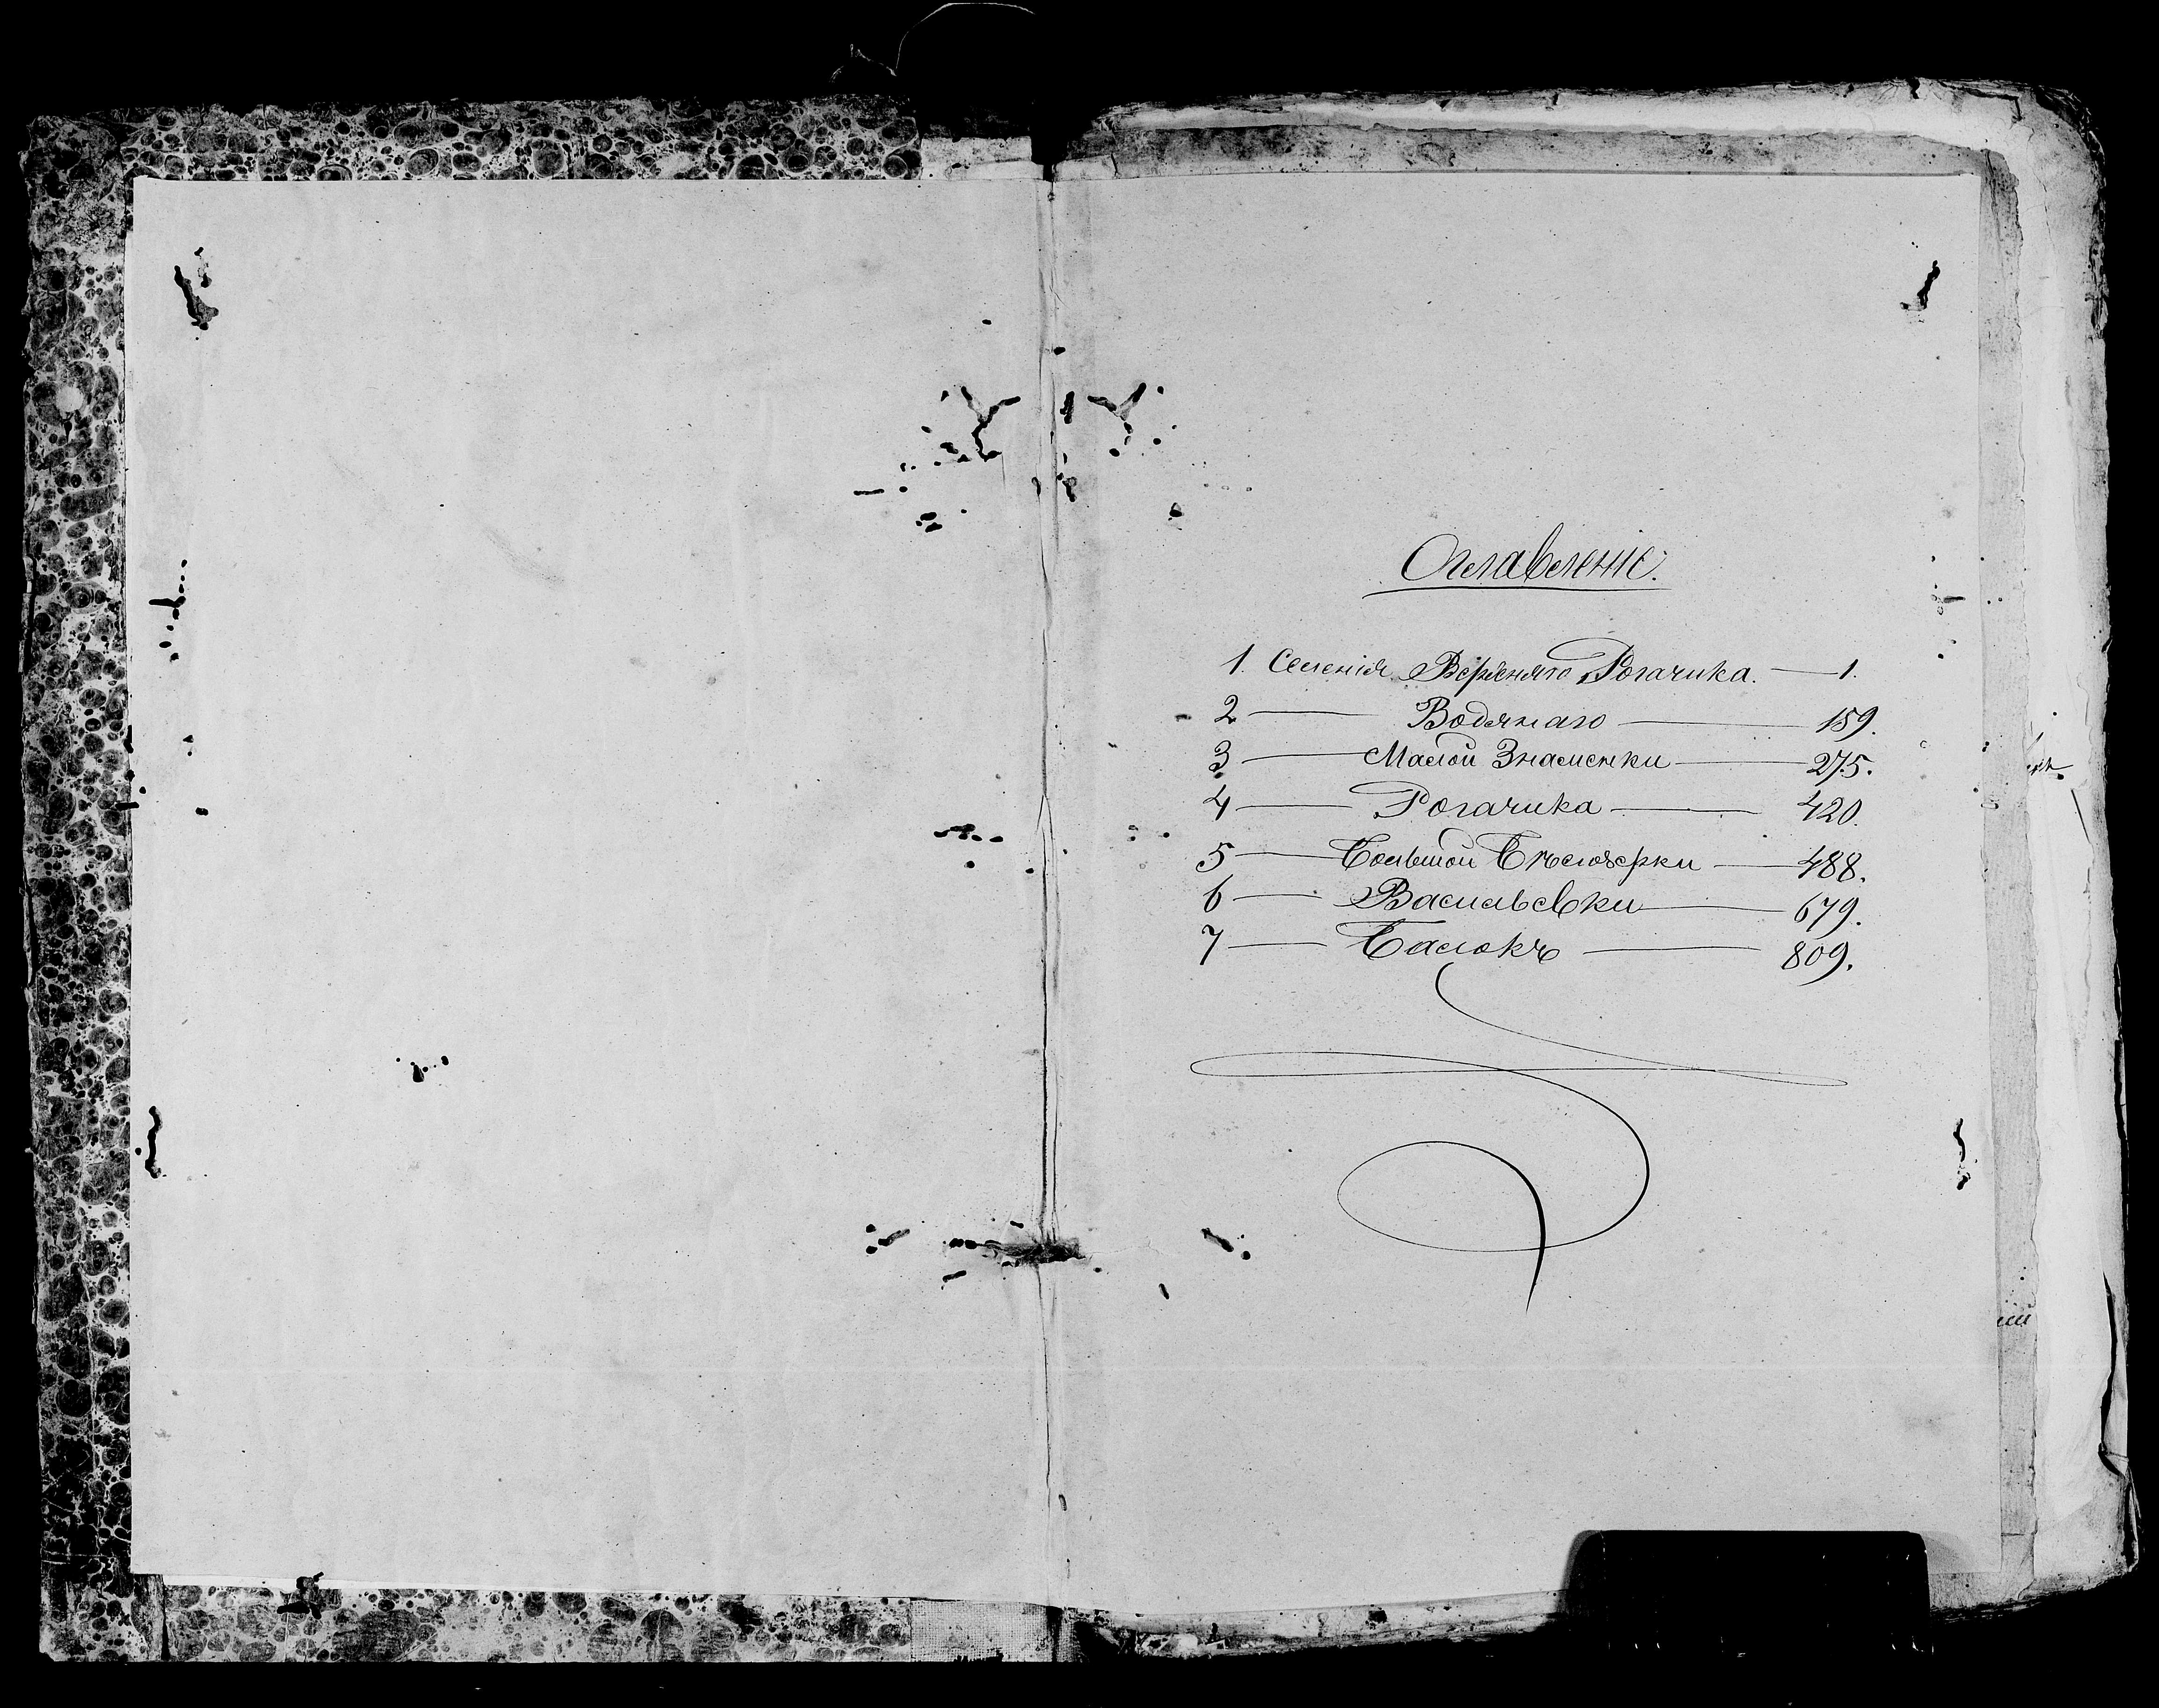 Оглавленіе.
1. Селенія Верхняго Рогачика. — 1.
2 — Водянаго — 159.
3 — Малой Знаменки — 275.
4 — Рогачика — 420.
5 — Большой Бѣлозерки — 488.
6 — Васильевки — 679.
7 — Балокъ — 809.